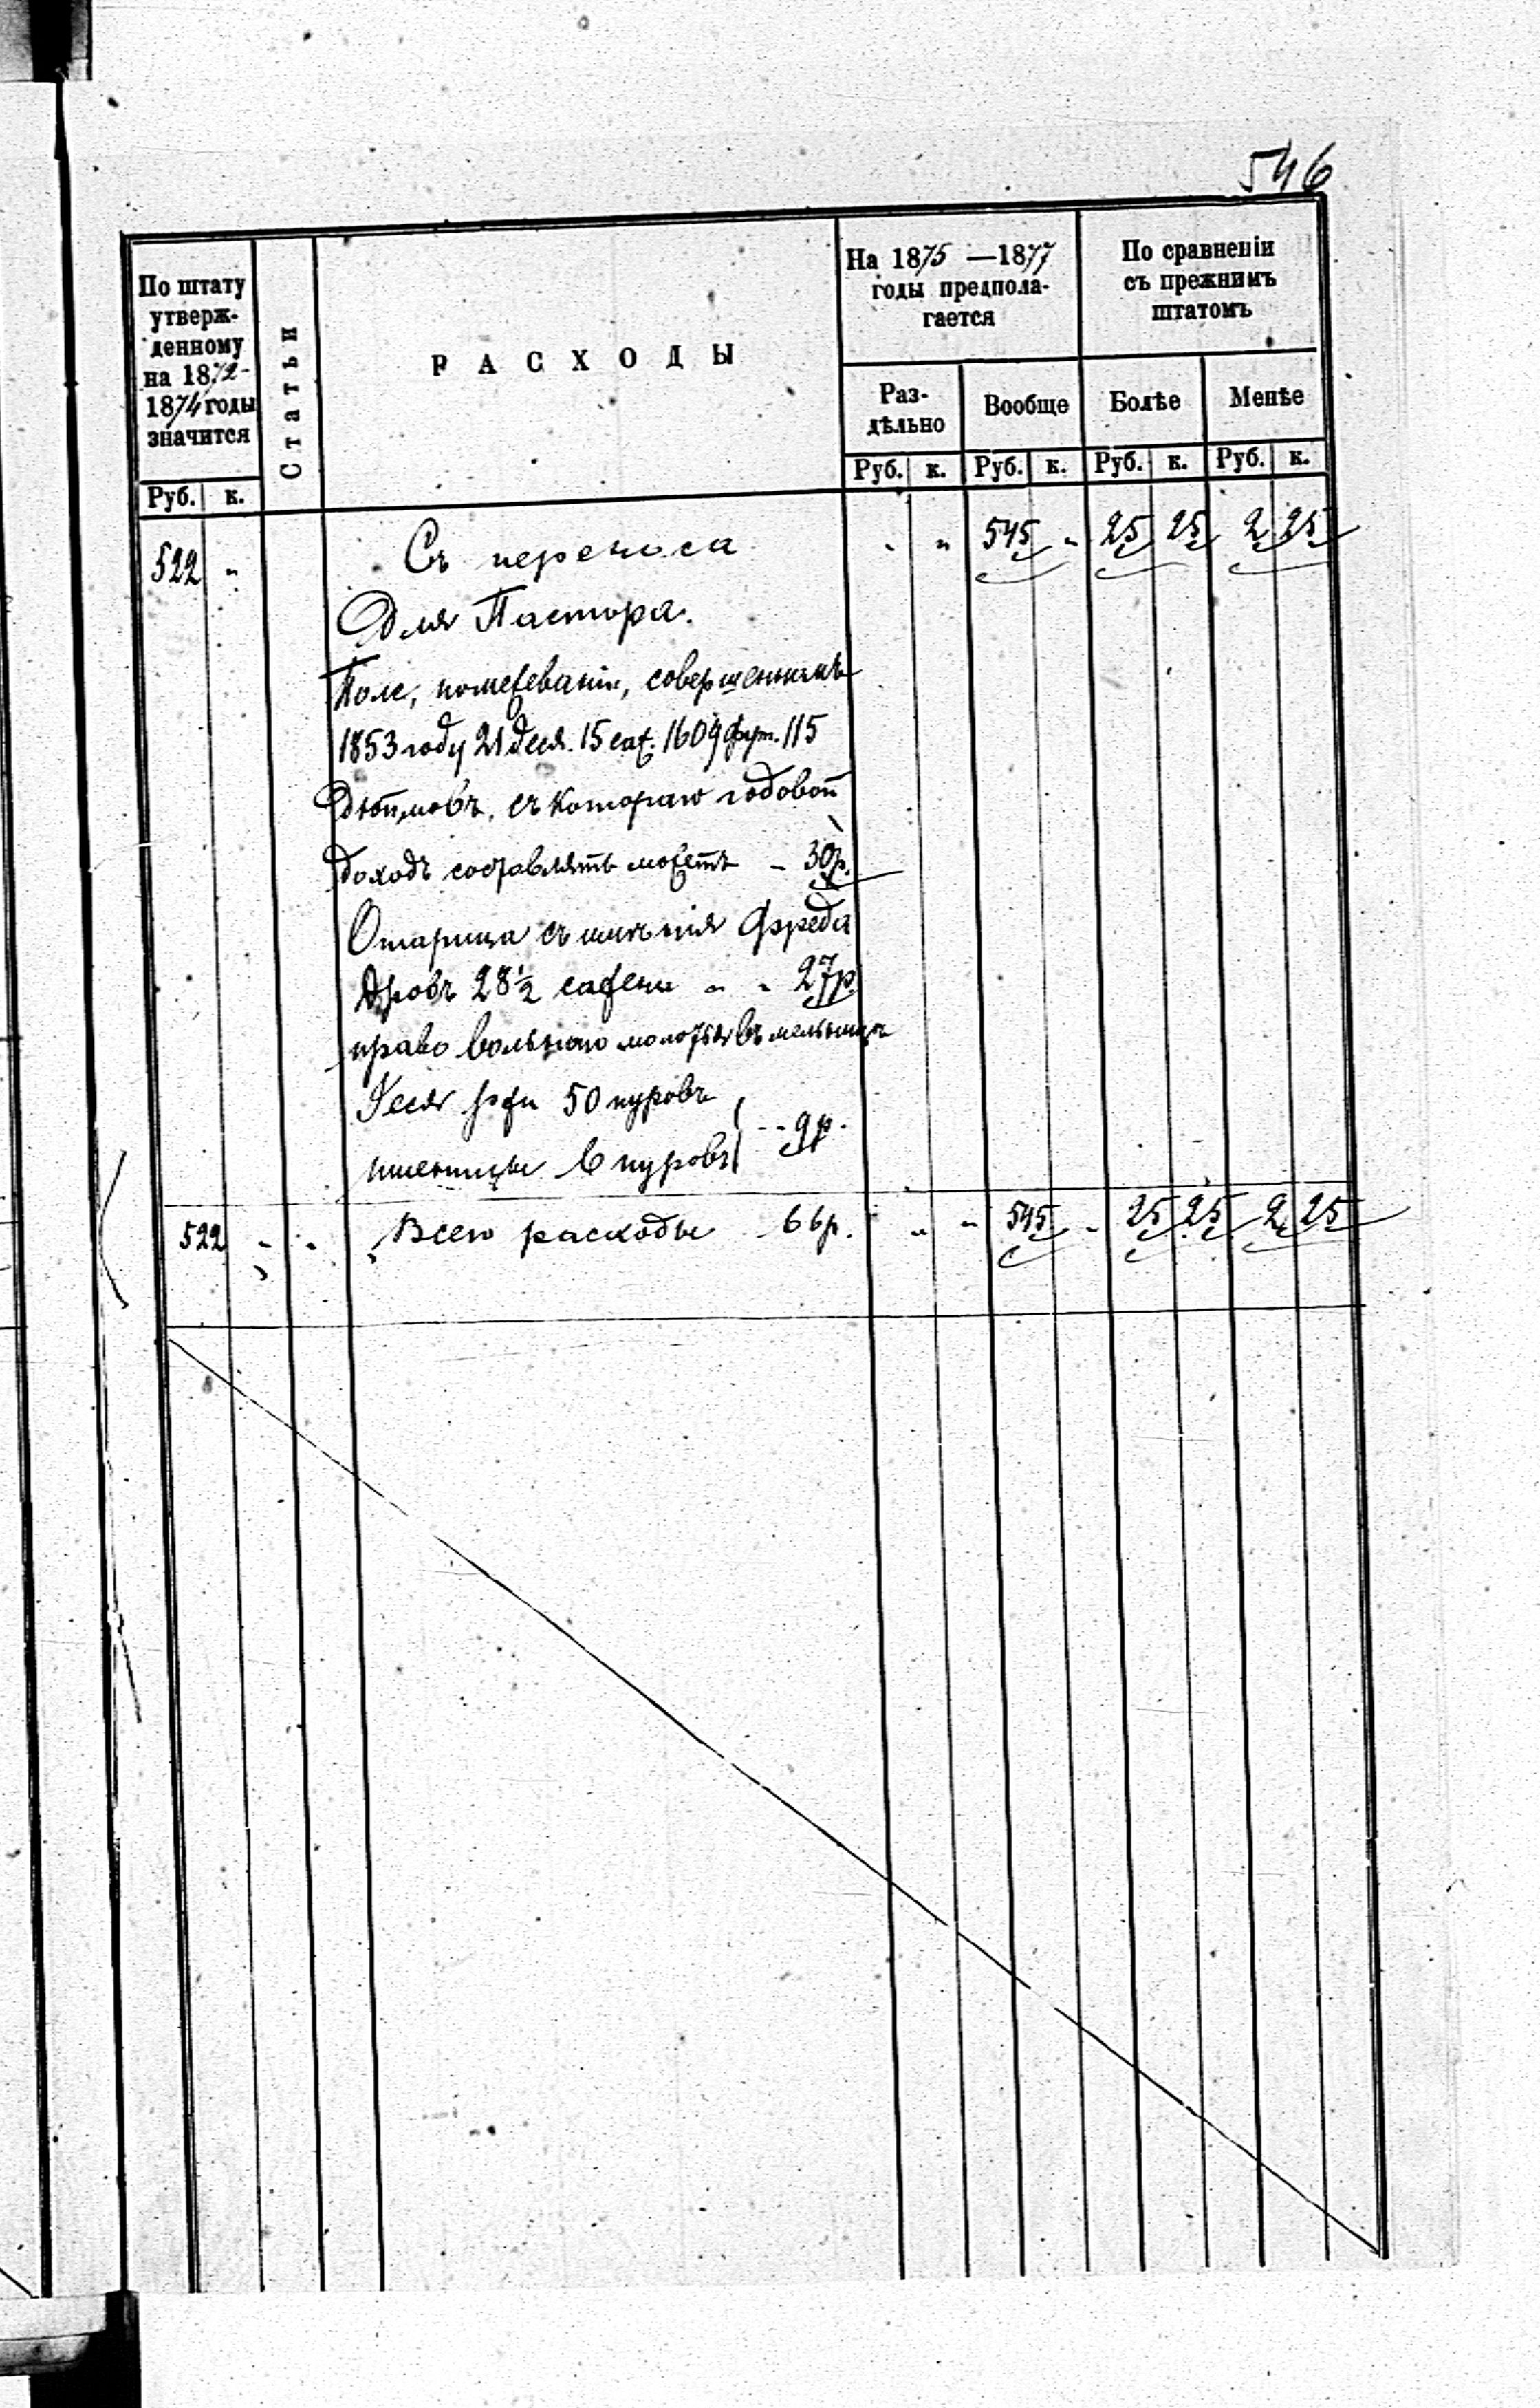 546
По штату утверж- денному на 1872- 1874 годы значится
Статьи
РАСХОДЫ
На 1875 —1877 годы предпола- гается
По сравненіи съ прежнимъ штатомъ
Раз- дѣльно
Вообще
Болѣе
Менѣе
Руб. к. Руб. к. Руб. к. Руб. к.
Руб. к.
522 " Съ переноса " " 545 " 25 25 2 25
Для Пастора.
Поле, по межеванію, совершенному
1853 году 21 деся. 15 саж. 1609 фут. 115
дюймовъ, съ котораго годовой
доходъ составлять можетъ - 30р.
съ имѣнія Фреда
Дровъ 28½ сажени " " 27р
право вольнаго молотья въ мельницѣ
ржи 50 пуровъ
пшеницы 6 пуровъ - - 9р.
522 " " Всего расходы 66р. " " 545 " 25 25 2 25